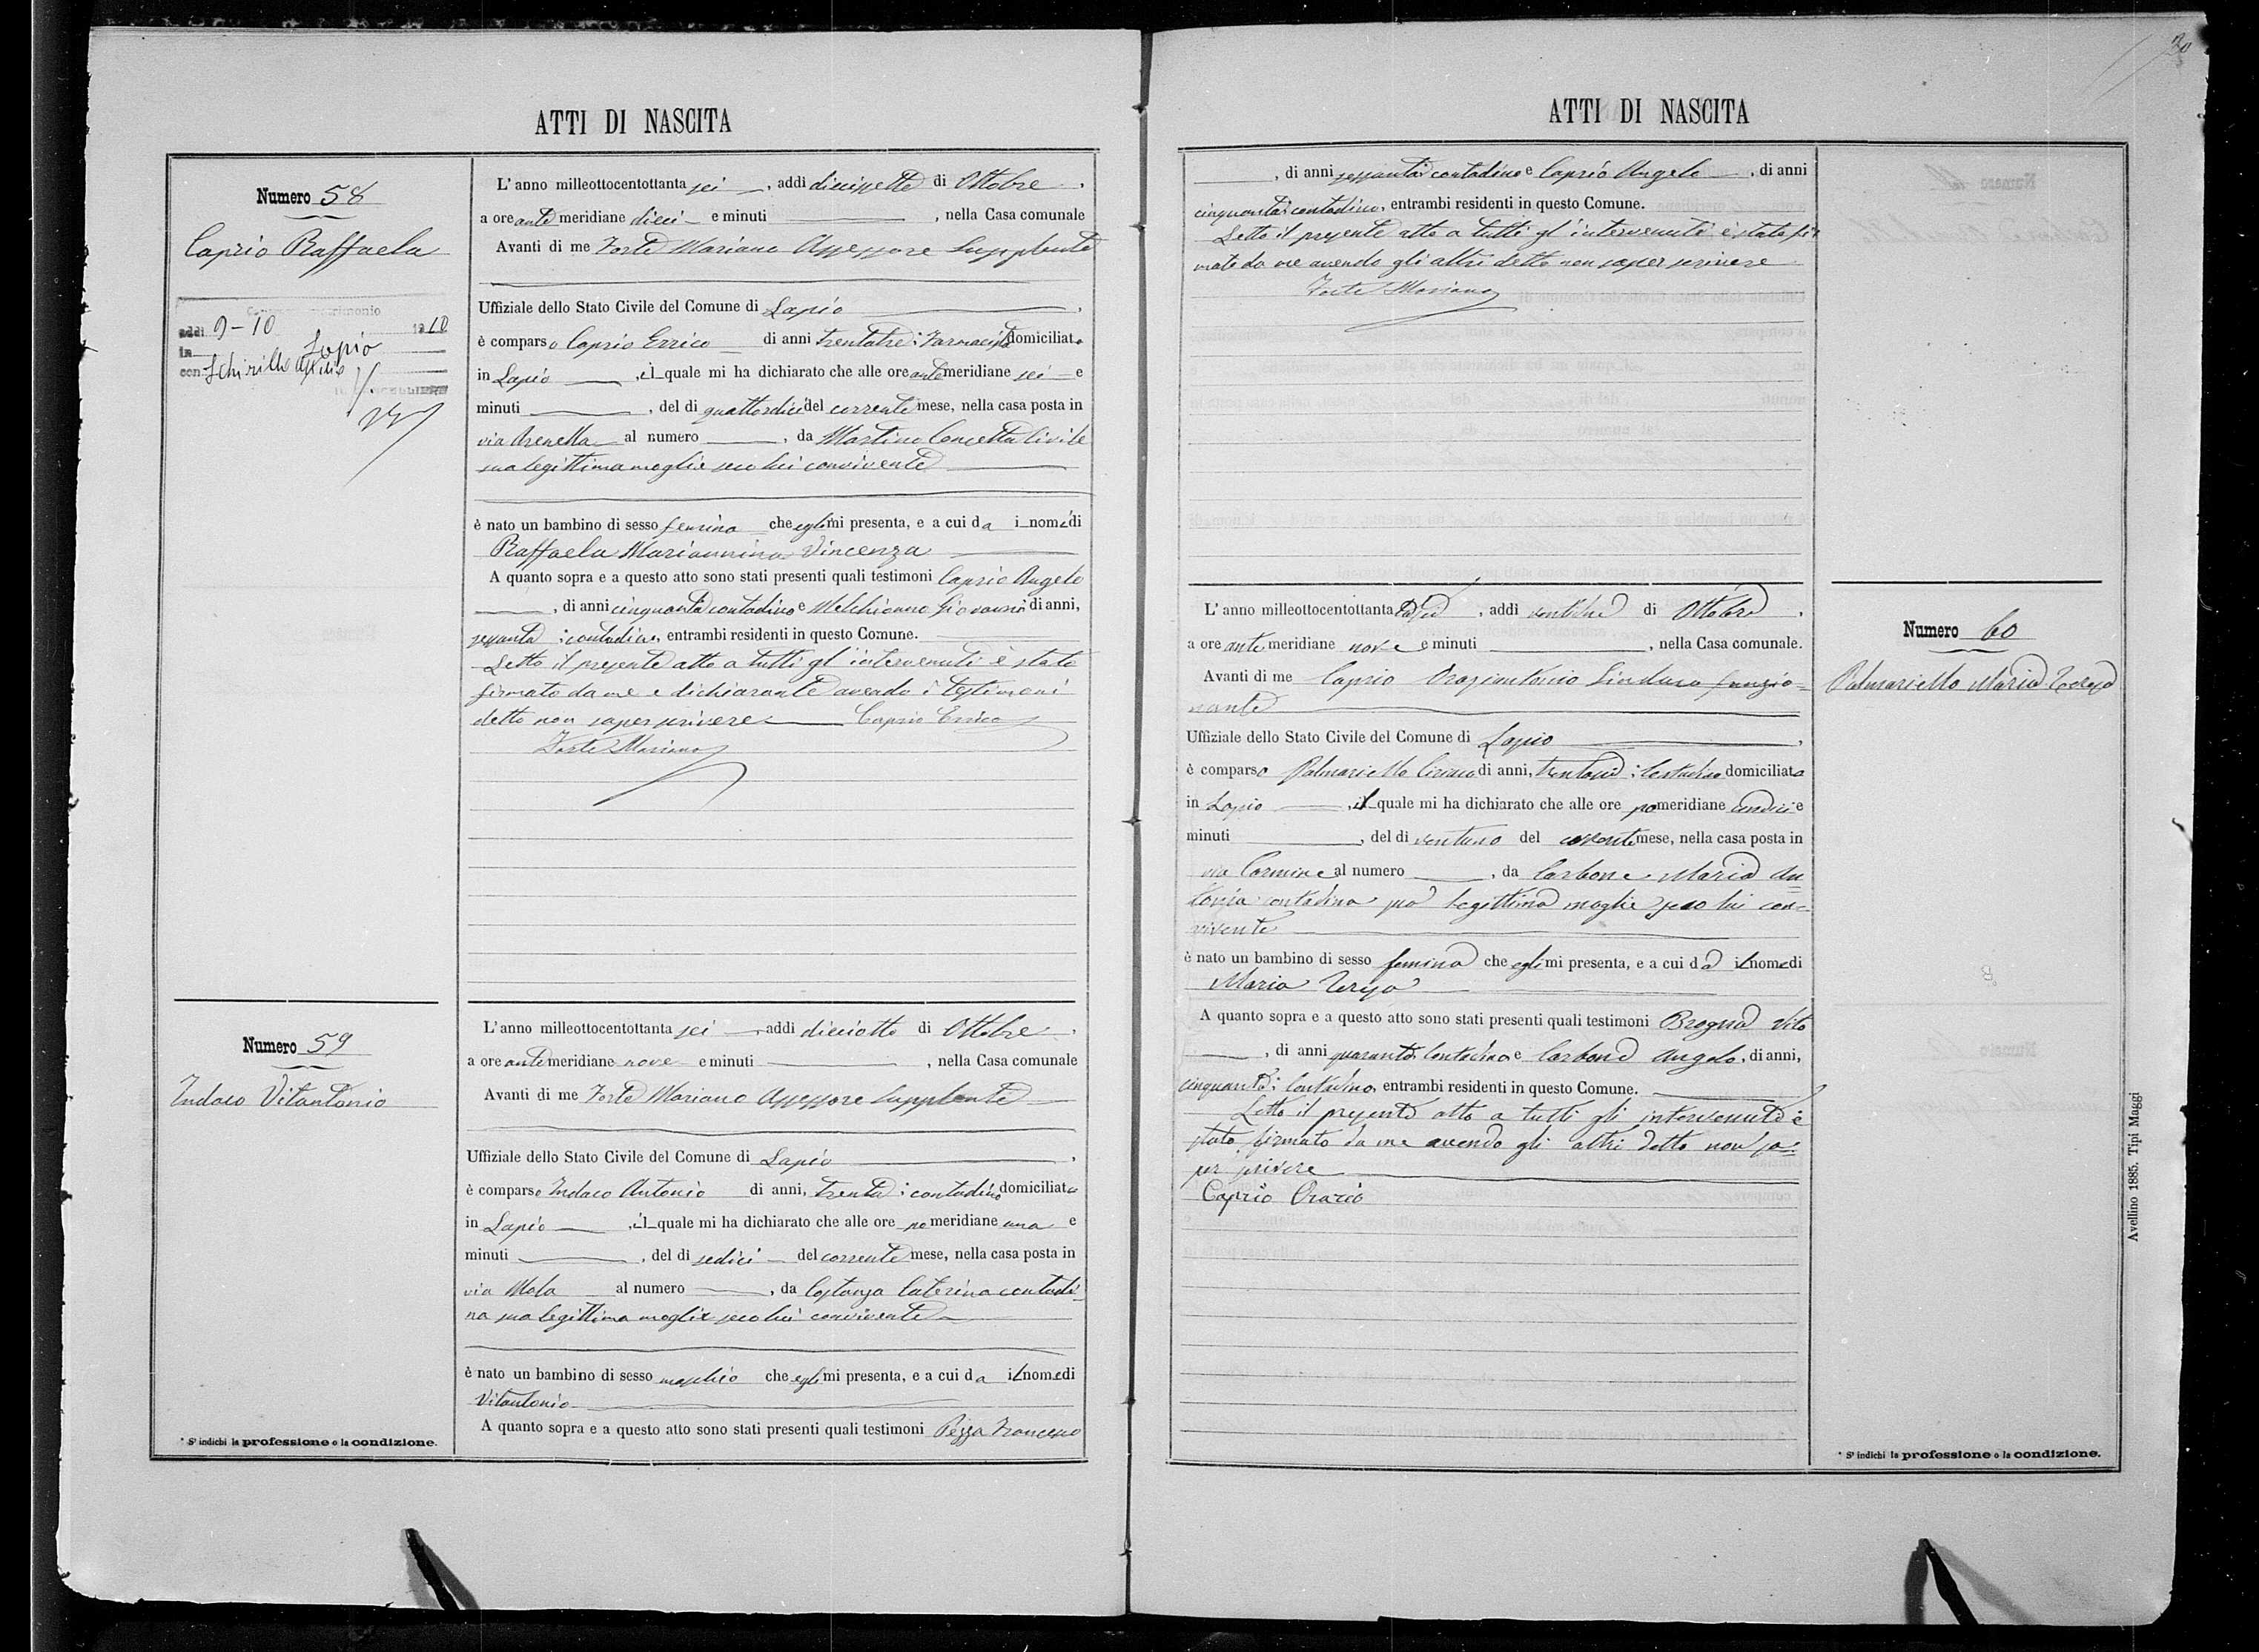 ATTI DI NASCITA
Numero 58
Caprio Raffaela
addì 9-10 1910
in Lapio
con Schirillo
L'anno milleottocentottanta sei, addì diecisette di Ottobre,
a ore ante meridiane dieci e minuti, nella Casa comunale
Avanti di me Forte Mariano Assessore Supplente
Uffiziale dello Stato Civile del Comune di Lapio,
è comparso Caprio Errico di anni trentatre; Farmacista domiciliato
in Lapio, il quale mi ha dichiarato che alle ore ante meridiane sei e
minuti, del dì quattordici del corrente mese, nella casa posta in
via Arenella al numero, da Martino Concetta Civile
sua legittima moglie seco lui convivente
è nato un bambino di sesso femina che egli mi presenta, e a cui da i nomi di
Raffaela Mariannina Vincenza
A quanto sopra e a questo atto sono stati presenti quali testimoni Caprio Angelo
, di anni cinquanta contadino e Melchionno Giovanni di anni,
sessanta; contadino, entrambi residenti in questo Comune.
Letto il presente atto a tutti gl'intervenuti è stato
firmato da me e dichiarante avendo i testimoni
detto non saper scrivere Caprio Errico
Forte Mariano
Numero 59
Indaco Vitantonio
L'anno milleottocentottanta sei addì dieciotto di Ottobre,
a ore ante meridiane nove e minuti, nella Casa comunale
Avanti di me Forte Mariano Assessore Supplente
Uffiziale dello Stato Civile del Comune di Lapio,
è comparso Indaco Antonio di anni, trenta; contadino domiciliato
in Lapio, il quale mi ha dichiarato che alle ore po meridiane una e
minuti, del dì sedici del corrente mese, nella casa posta in
via Mala al numero, da Costanza Caterina contadi-
na sua legittima moglie seco lui convivente
è nato un bambino di sesso maschio che egli mi presenta, e a cui da il nome di
Vitantonio
A quanto sopra e a questo atto sono stati presenti quali testimoni Pezza Francesco
* S'indichi la professione o la condizione.
30
ATTI DI NASCITA
, di anni sessanta contadino e Caprio Angelo, di anni
cinquanta; contadino, entrambi residenti in questo Comune.
Letto il presente atto a tutti gl'intervenuti è stato fir
mato da me avendo gli altri detto non saper scrivere
Forte Mariano
L'anno milleottocentottanta sei, addì ventidue di Ottobre,
a ore ante meridiane nove e minuti, nella Casa comunale.
Avanti di me Caprio Oraziantonio Sindaco funzio=
nante
Uffiziale dello Stato Civile del Comune di Lapio,
è comparso Palmariello Ciriaco di anni, trentasei; Contadino domiciliato
in Lapio, il quale mi ha dichiarato che alle ore po meridiane undici e
minuti, del dì ventuno del corrente mese, nella casa posta in
via Carmine al numero, da Carbone Maria An
tonia contadina sua legittima moglie seco lui con=
vivente
è nato un bambino di sesso femina che egli mi presenta, e a cui dà il nome di
Maria Teresa
A quanto sopra e a questo atto sono stati presenti quali testimoni Brogna Vito
, di anni quaranta Contadino e Carbone Angelo, di anni,
cinquanta; Contadino, entrambi residenti in questo Comune.
Letto il presente atto a tutti gli intervenuti è
stato firmato da me avendo gli altri detto non sa=
per scrivere
Caprio Orazio
Numero 60
Palmariello Maria Teresa
* S'indichi la professione o la condizione.
Avellino 1885. Tipi Maggi